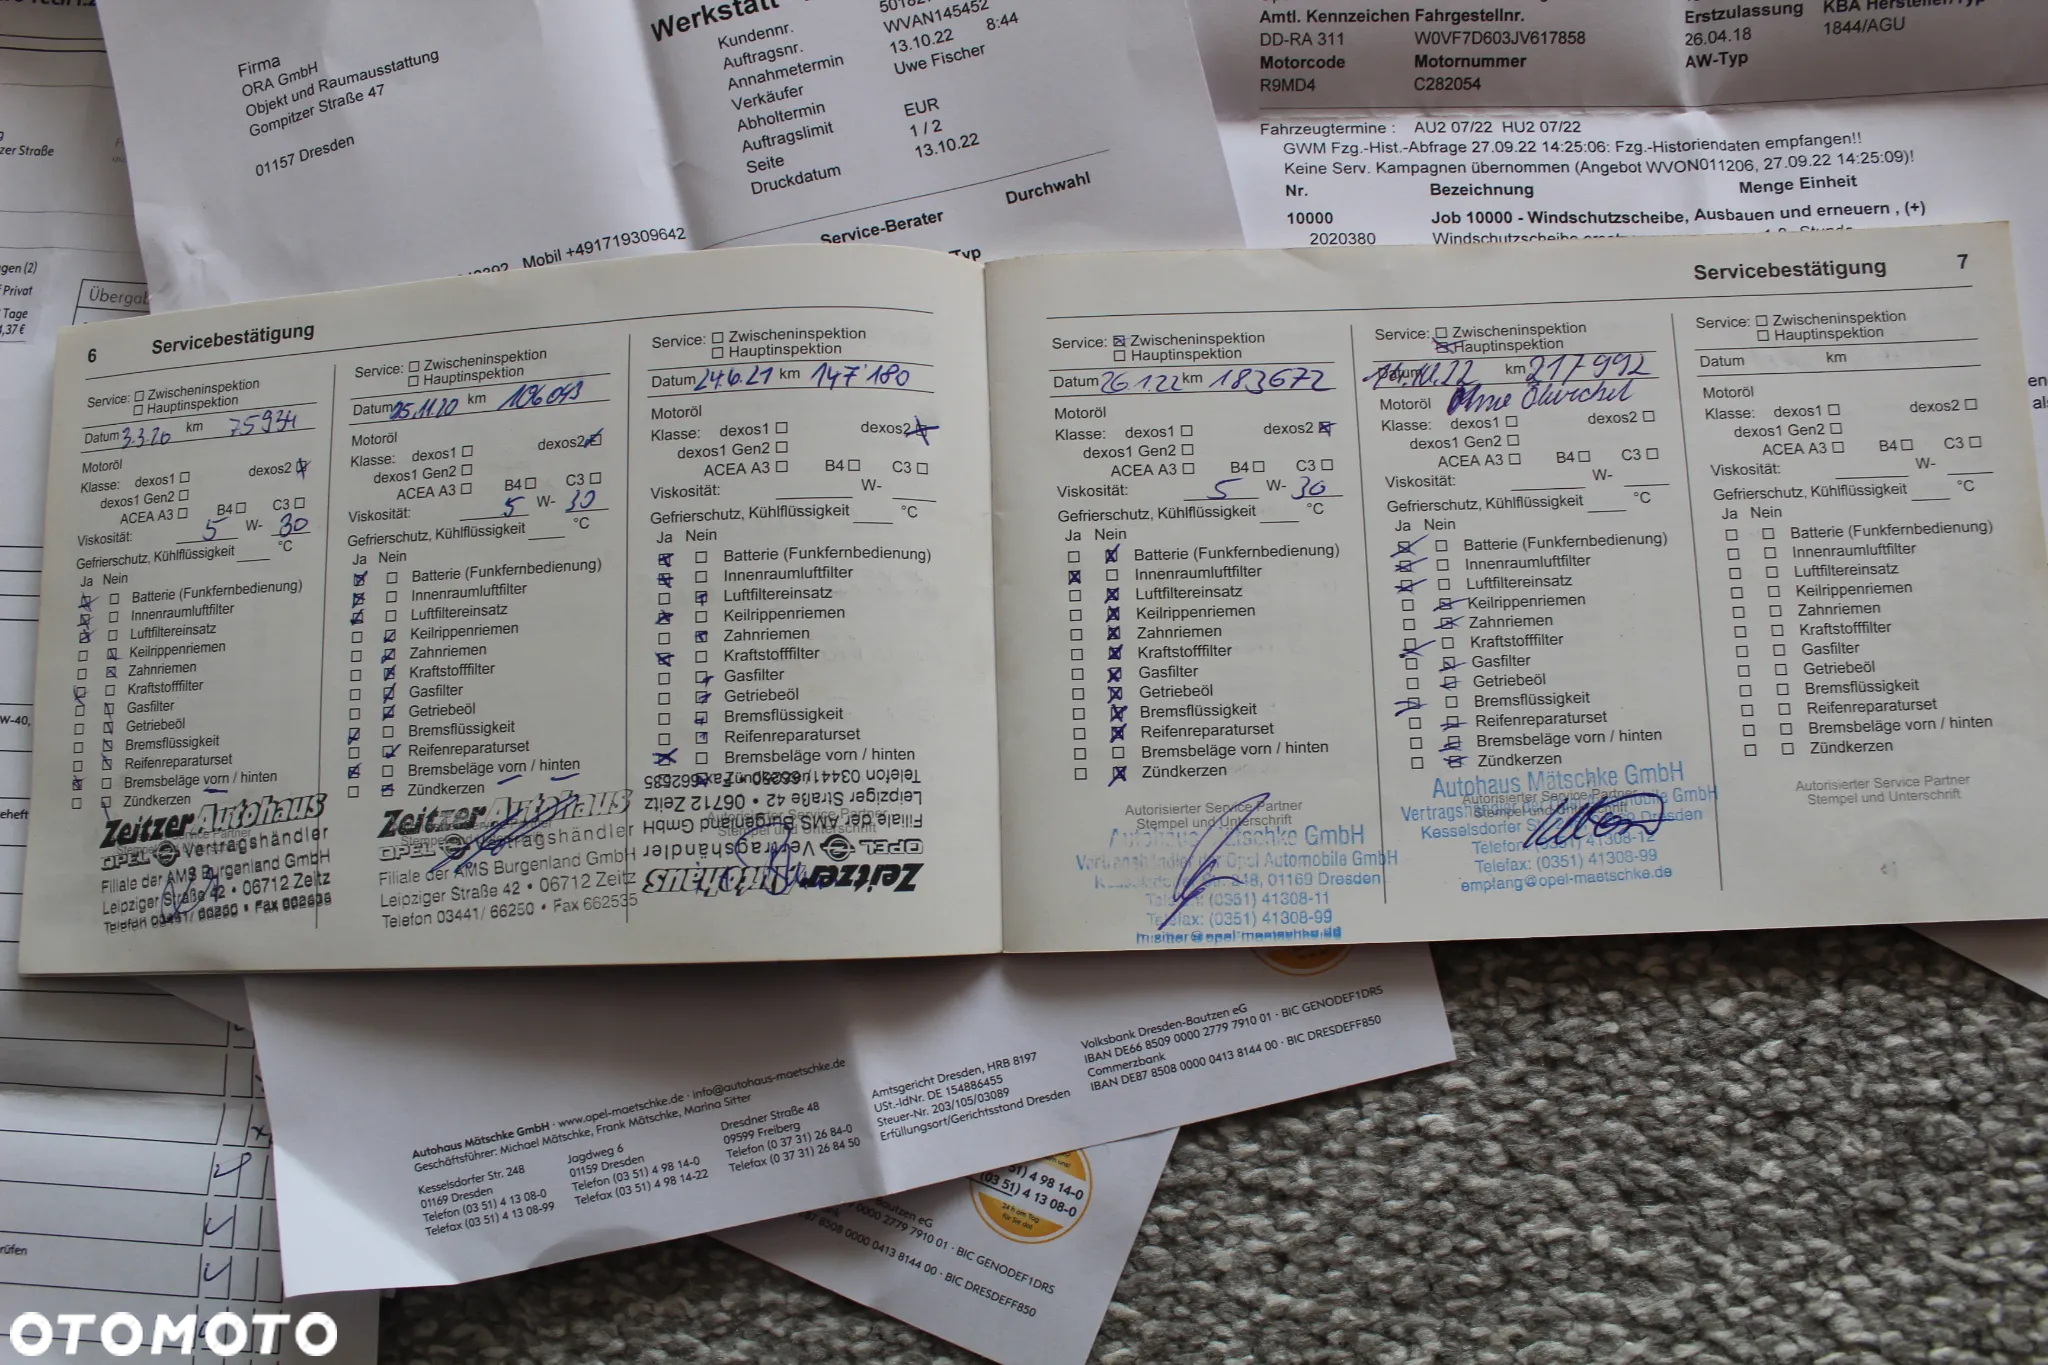 Firma
ORA GmbH
Objekt und Raumausstattung
Gompitzer Straße 47
01157 Dresden
Mobil +491719309642
zer Straße
gen (2)
Privat
Tage
,37 €
Werkstatt
Kundennr.
Auftragsnr. WVAN145452
Annahmetermin 13.10.22 8:44
Verkäufer Uwe Fischer
Abholtermin
Auftragslimit EUR
Seite 1 / 2
Druckdatum 13.10.22
Service-Berater Durchwahl
Amtl. Kennzeichen Fahrgestellnr. Erstzulassung
DD-RA 311 W0VF7D603JV617858 26.04.18 1844/AGU
Motorcode Motornummer AW-Typ
R9MD4 C282054
Fahrzeugtermine : AU2 07/22 HU2 07/22
GWM Fzg.-Hist.-Abfrage 27.09.22 14:25:06: Fzg.-Historiendaten empfangen!!
Keine Serv. Kampagnen übernommen (Angebot WVON011206, 27.09.22 14:25:09)!
Nr. Bezeichnung Menge Einheit
10000 Job 10000 - Windschutzscheibe, Ausbauen und erneuern , (+)
2020380
6 Servicebestätigung
Service: Zwischeninspektion
Hauptinspektion
Datum 3.3.20 km 75934
Motoröl
Klasse: dexos1 dexos2
dexos1 Gen2
ACEA A3 B4 C3
Viskosität: 5 W- 30
Gefrierschutz, Kühlflüssigkeit °C
Ja Nein
Batterie (Funkfernbedienung)
Innenraumluftfilter
Luftfiltereinsatz
Keilrippenriemen
Zahnriemen
Kraftstofffilter
Gasfilter
Getriebeöl
Bremsflüssigkeit
Reifenreparaturset
Bremsbeläge vorn / hinten
Zündkerzen
Zeitzer Autohaus
OPEL Vertragshändler
Filiale der AMS Burgenland GmbH
Leipziger Straße 42 • 06712 Zeitz
Service: Zwischeninspektion
Hauptinspektion
Datum 25.11.20 km 106043
Motoröl
Klasse: dexos1 dexos2
dexos1 Gen2
ACEA A3 B4 C3
Viskosität: 5 W- 30
Gefrierschutz, Kühlflüssigkeit °C
Ja Nein
Batterie (Funkfernbedienung)
Innenraumluftfilter
Luftfiltereinsatz
Keilrippenriemen
Zahnriemen
Kraftstofffilter
Gasfilter
Getriebeöl
Bremsflüssigkeit
Reifenreparaturset
Bremsbeläge vorn / hinten
Zündkerzen
Zeitzer Autohaus
OPEL Vertragshändler
Filiale der AMS Burgenland GmbH
Leipziger Straße 42 • 06712 Zeitz
Telefon 03441/ 66250 • Fax 662535
Service: Zwischeninspektion
Hauptinspektion
Datum 24.6.21 km 147'180
Motoröl
Klasse: dexos1 dexos2
dexos1 Gen2
ACEA A3 B4 C3
Viskosität: W-
Gefrierschutz, Kühlflüssigkeit °C
Ja Nein
Batterie (Funkfernbedienung)
Innenraumluftfilter
Luftfiltereinsatz
Keilrippenriemen
Zahnriemen
Kraftstofffilter
Gasfilter
Getriebeöl
Bremsflüssigkeit
Reifenreparaturset
Bremsbeläge vorn / hinten
Zündkerzen
Zeitzer Autohaus
OPEL Vertragshändler
Filiale der AMS Burgenland GmbH
Leipziger Straße 42 • 06712 Zeitz
Telefon 03441/ 66250 • Fax 662535
Servicebestätigung 7
Service: Zwischeninspektion
Hauptinspektion
Datum 26.1.22 km 183672
Motoröl
Klasse: dexos1 dexos2
dexos1 Gen2
ACEA A3 B4 C3
Viskosität: 5 W- 30
Gefrierschutz, Kühlflüssigkeit °C
Ja Nein
Batterie (Funkfernbedienung)
Innenraumluftfilter
Luftfiltereinsatz
Keilrippenriemen
Zahnriemen
Kraftstofffilter
Gasfilter
Getriebeöl
Bremsflüssigkeit
Reifenreparaturset
Bremsbeläge vorn / hinten
Zündkerzen
Autorisierter Service Partner
Stempel und Unterschrift
Autohaus Mätschke GmbH
Vertragshändler der Opel Automobile GmbH
248, 01169 Dresden
Telefon: (0351) 41308-11
Telefax: (0351) 41308-99
Service: Zwischeninspektion
Hauptinspektion
Datum 14.10.22 km 217992
Motoröl Ohne Ölwechsel
Klasse: dexos1 dexos2
dexos1 Gen2
ACEA A3 B4 C3
Viskosität: W-
Gefrierschutz, Kühlflüssigkeit °C
Ja Nein
Batterie (Funkfernbedienung)
Innenraumluftfilter
Luftfiltereinsatz
Keilrippenriemen
Zahnriemen
Kraftstofffilter
Gasfilter
Getriebeöl
Bremsflüssigkeit
Reifenreparaturset
Bremsbeläge vorn / hinten
Zündkerzen
Autohaus Mätschke GmbH
Autorisierter Service Partner
Kesselsdorfer Dresden
Telefon: (0351) 41308-12
Telefax: (0351) 41308-99
empfang@opel-maetschke.de
Service: Zwischeninspektion
Hauptinspektion
Datum km
Motoröl
Klasse: dexos1 dexos2
dexos1 Gen2
ACEA A3 B4 C3
Viskosität: W-
Gefrierschutz, Kühlflüssigkeit °C
Ja Nein
Batterie (Funkfernbedienung)
Innenraumluftfilter
Luftfiltereinsatz
Keilrippenriemen
Zahnriemen
Kraftstofffilter
Gasfilter
Getriebeöl
Bremsflüssigkeit
Reifenreparaturset
Bremsbeläge vorn / hinten
Zündkerzen
Autorisierter Service Partner
Stempel und Unterschrift
Autohaus Mätschke GmbH · www.opel-maetschke.de · info@autohaus-maetschke.de
Geschäftsführer: Michael Mätschke, Frank Mätschke, Marina Sitter
Kesselsdorfer Str. 248
01169 Dresden
Telefon (03 51) 4 13 08-0
Telefax (03 51) 4 13 08-99
Jagdweg 6
01159 Dresden
Telefon (03 51) 4 98 14-0
Telefax (03 51) 4 98 14-22
Dresdner Straße 48
09599 Freiberg
Telefon (0 37 31) 26 84-0
Telefax (0 37 31) 26 84 50
Amtsgericht Dresden, HRB 8197
USt.-IdNr. DE 154886455
Steuer-Nr. 203/105/03089
Erfüllungsort/Gerichtsstand Dresden
Volksbank Dresden-Bautzen eG
IBAN DE66 8509 0000 2779 7910 01 · BIC GENODEF1DRS
Commerzbank
IBAN DE87 8508 0000 0413 8144 00 · BIC DRESDEFF850
51) 4 98 14-0
(03 51) 4 13 08-0
24 h am Tag
für Sie da!
Bautzen eG
0000 2779 7910 01 · BIC GENODEF1DRS
87 8508 0000 0413 8144 00 · BIC DRESDEFF850
OTOMOTO